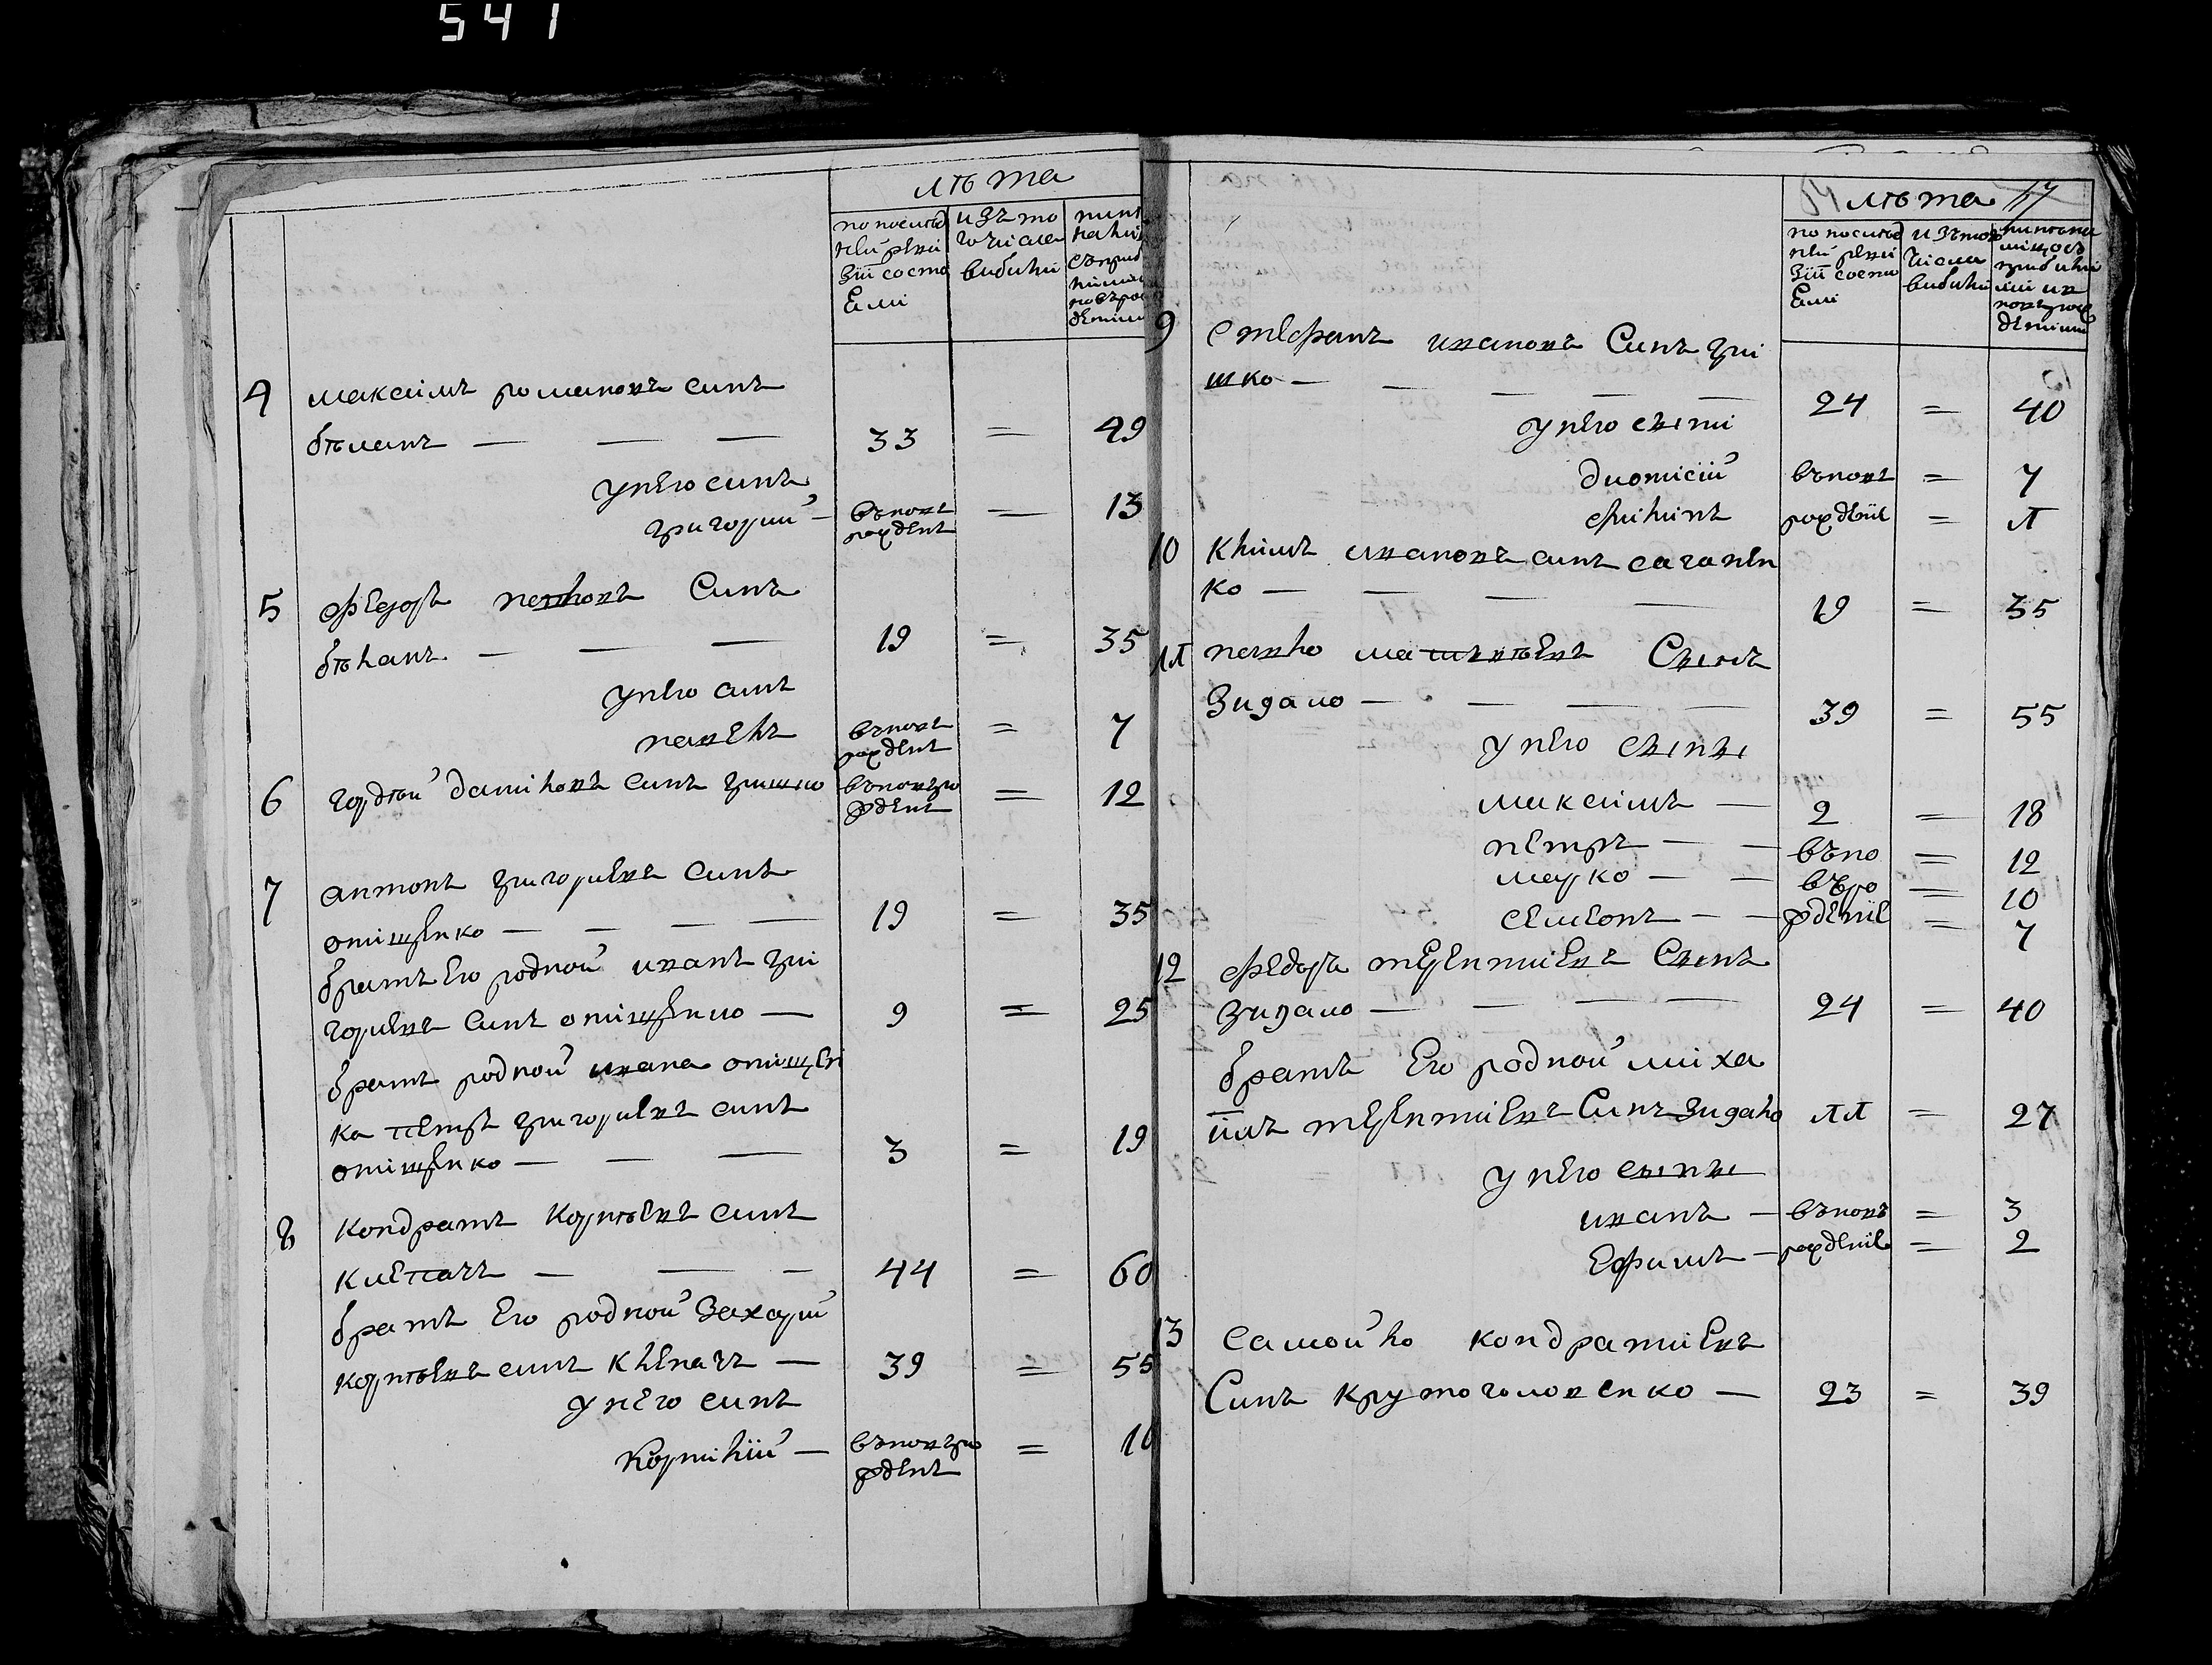 541
лѣта
по послед
ней реви
зіи состо
яли
изъ то
го числа
вибили
4 максимъ романовъ синъ
бѣланъ — — — 33 = 49
у него синъ
григорий — вънов
рожденъ = 13
5 федоръ павловъ Синъ
бѣланъ — — — 19 = 35
у него синъ
павелъ вънов
рожденъ = 7
6 гордѣй даниловъ синъ гришко въновъро
жденъ = 12
7 антонъ григориевъ синъ
онищенко — — — 19 = 35
братъ его родной иванъ гри
гориевъ синъ онищенко — 9 = 25
братъ родной ивана онищен
ка петръ григориевъ синъ
онищенко — — — 3 = 19
8 кондратъ корнѣевъ синъ
клепачъ — — — 44 = 60
братъ его родной Захарий
корнѣевъ синъ клепачъ — 39 = 55
у него синъ
Корнилій — въновъро
жденъ = 10
лѣта 17
по послед
ней реви
зіи состо
яли
изъ того
числа
вибили
9 стефанъ ивановъ Синъ гри
шко — — — — 24 = 40
у него сыни
дионисій въновъ = 7
филипъ рожденіе = 11
10 климъ ивановъ синъ саганен
ко — — — — 19 = 35
11 павло матвѣевъ Сынъ
Зидало — — — — 39 = 55
у него сыны
максимъ — 2 = 18
петръ — — въно = 12
марко — — въро = 10
семеонъ — — жденіе = 7
12 федоръ терентиевъ Сынъ
Зидало — — — — 24 = 40
братъ Его родной миха
илъ терентиевъ Синъ Зидало 11 = 27
у него сыны
иванъ — въновъ = 3
Ефимъ — рожденіе = 2
13 самойло кондратиевъ
Синъ крутоголовенко — 23 = 39